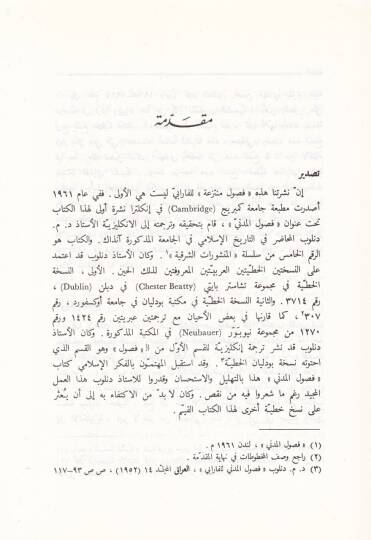 مقدّمة
تصدير
إنّ نشرتنا هذه « فصول منتزعة » للفارابيّ ليست هي الأولى . ففي عام ١٩٦١
أصدرت مطبعة جامعة كمبريج (Cambridge) في إنكلترا نشرة أولى لهذا الكتاب
تحت عنوان « فصول المدنيّ » ، قام بتحقيقه وترجمته إلى الانكليزيّة الأستاذ د. م.
دنلوب المحاضر في التاريخ الإسلامي في الجامعة المذكورة آنذاك . والكتاب هو
الرقم الخامس من سلسلة « المنشورات الشرقية »١ . وكان الأستاذ دنلوب قد اعتمد
على النسختين الخطّيتين العربيتين المعروفتين لذلك الحين . الأولى ، النسخة
الخطّية في مجموعة تشاستر بايتي (Chester Beatty) في دبلن (Dublin) ،
رقم ٣٧١٤ . والثانية النسخة الخطّية في مكتبة بودليان في جامعة أوكسفورد ، رقم
٣٠٧٢ ، كما قارنها في بعض الأحيان مع ترجمتين عبريتين رقم ١٤٢٤ ورقم
١٢٧٠ من مجموعة نيوبوَر (Neubauer) في المكتبة المذكورة . وكان الأستاذ
دنلوب قد نشر ترجمة إنكليزيّة للقسم الأوّل من الـ« فصول » وهو القسم الذي
احتوته نسخة بودليان الخطّية٣ . وقد استقبل المهتمّون بالفكر الإسلامي كتاب
« فصول المدني » هذا بالتهليل والاستحسان وقدروا للاستاذ دنلوب هذا العمل
المجيد رغم ما شعروا فيه من نقص . وكان لا بدّ من الاكتفاء به إلى أن يُعثر
على نسخ خطيّة أخرى لهذا الكتاب القيّم .
(١) « فصول المدني » ، لندن ١٩٦١ م .
(٢) راجع وصف المخطوطات في نهاية المقدّمة .
(٣) د. م. دنلوب « فصول المدني للفارابي » ، العراق المجلّد ١٤ (١٩٥٢) ، ص ص ٩٣-١١٧